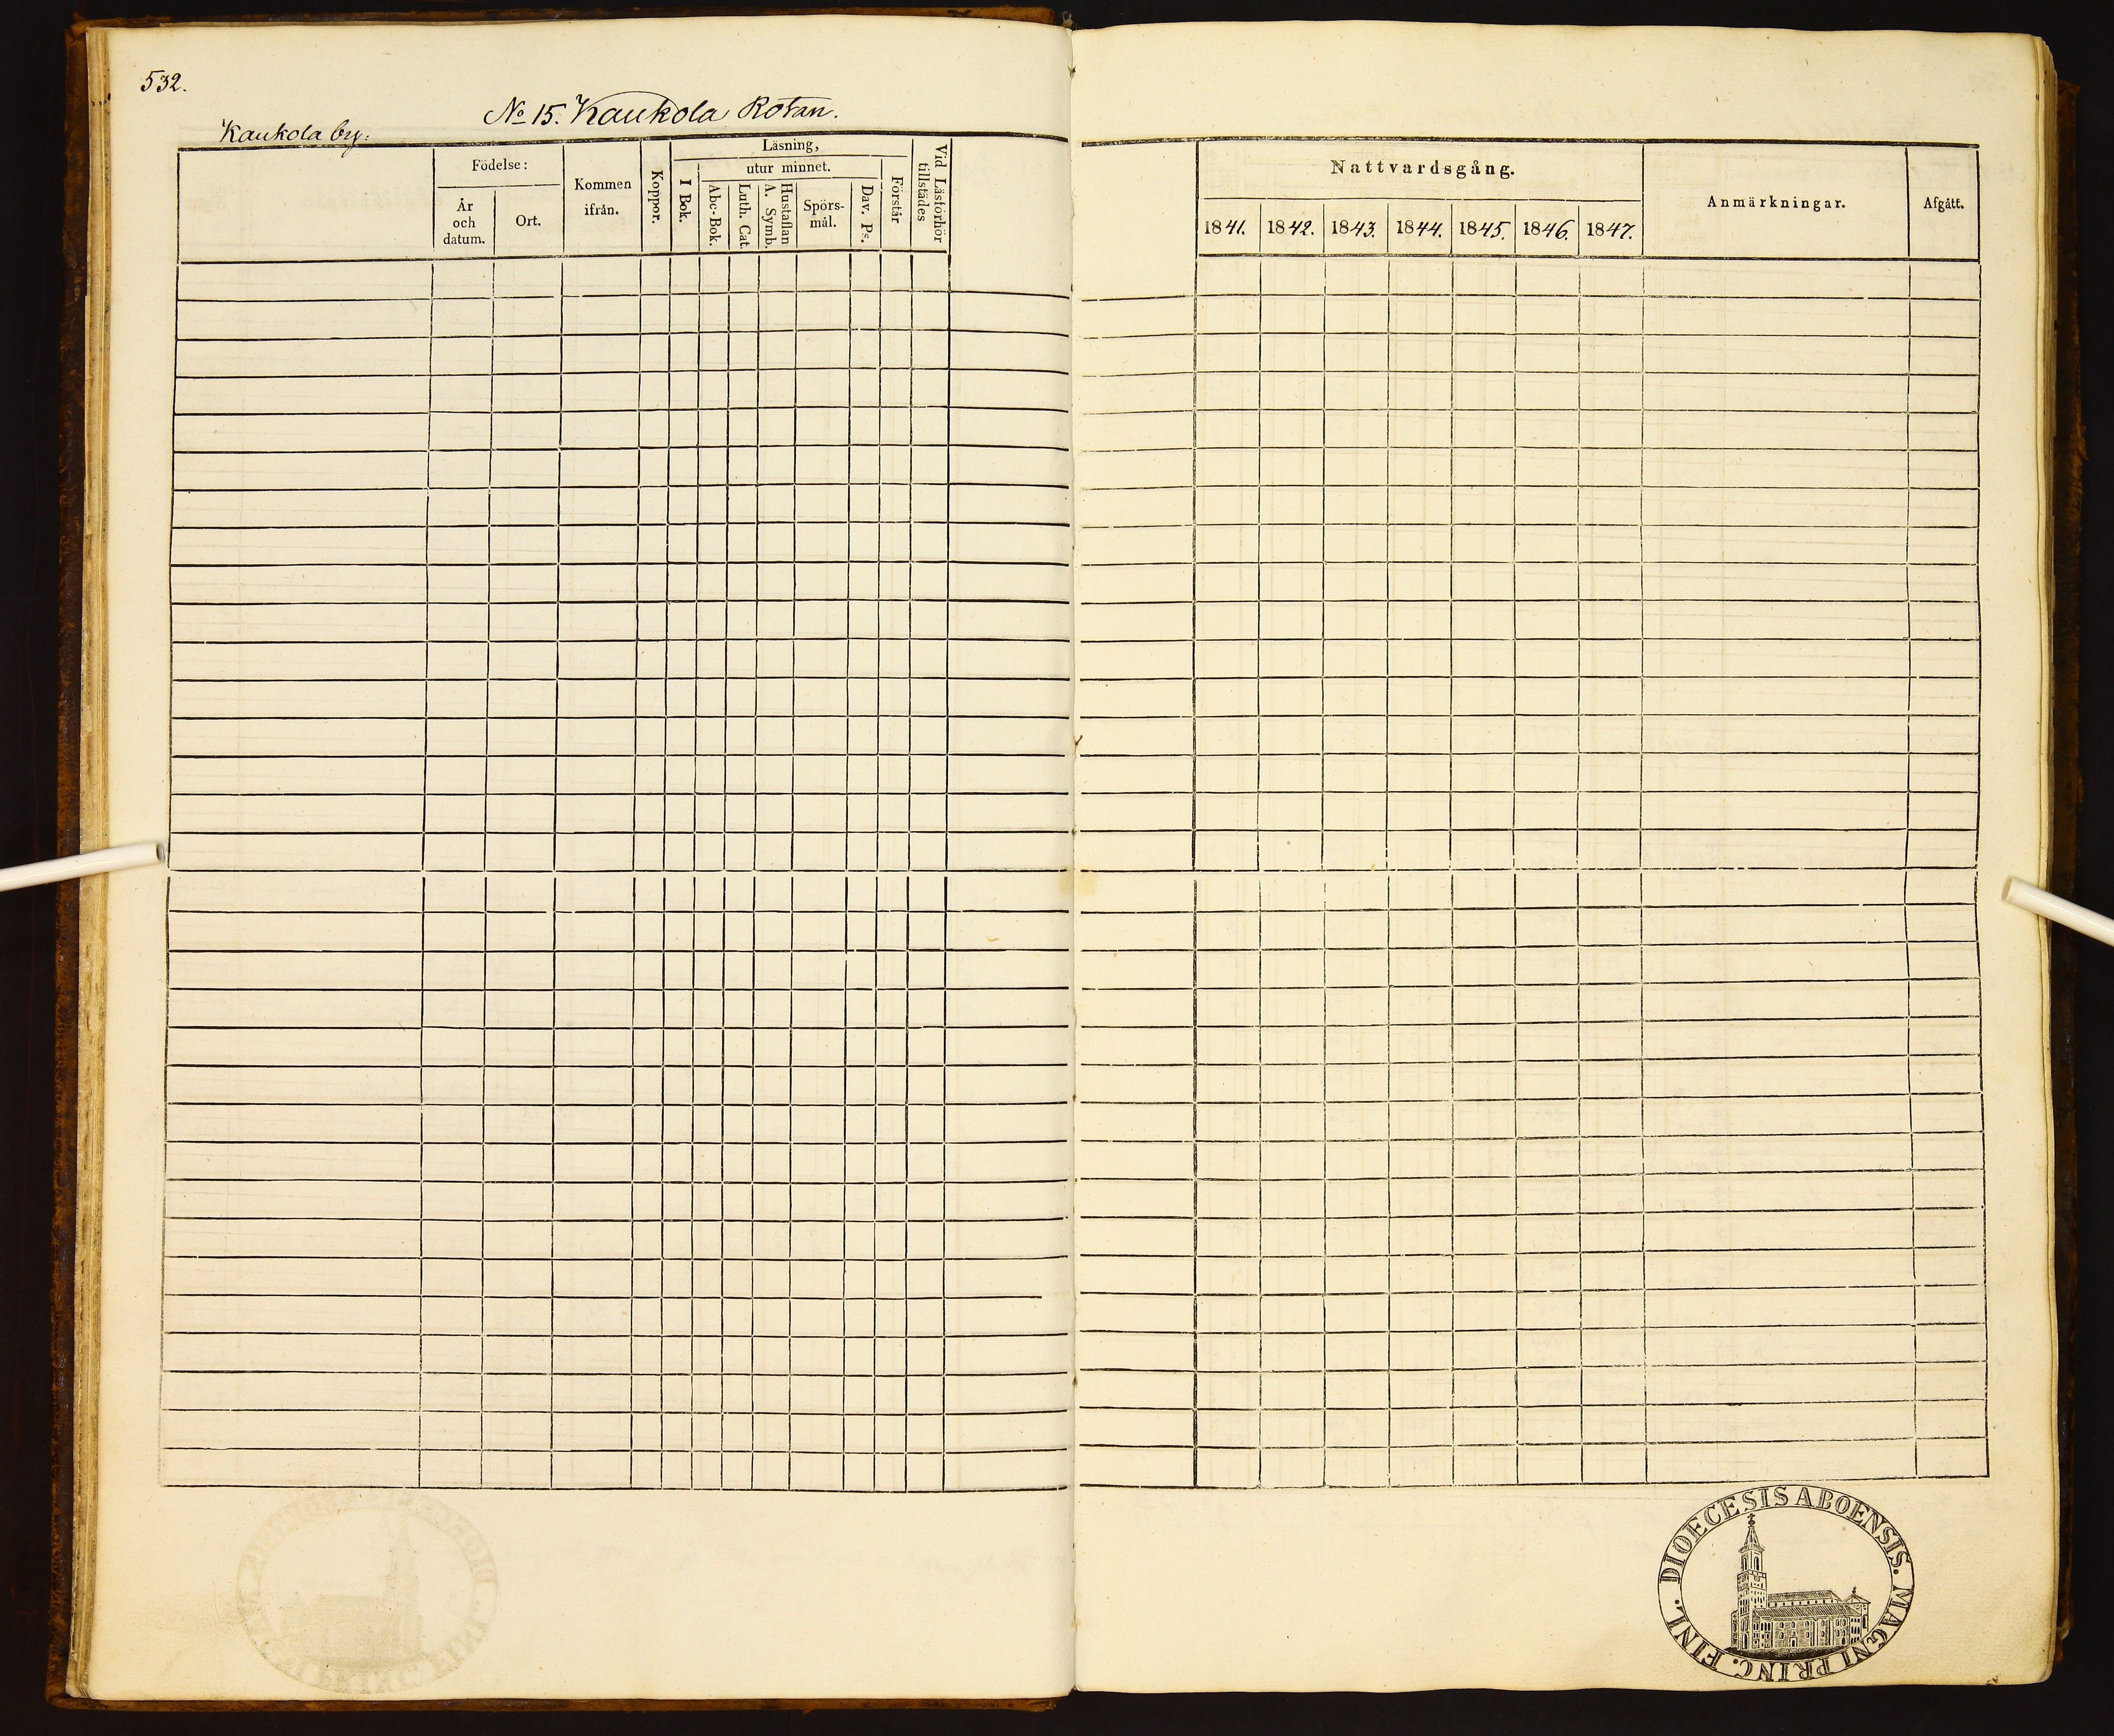 532.
No 15. Kaukola Rotan.
Kaukola by:
Födelse:
År och datum.
Ort.
Kommen ifrån.
Koppor.
Läsning,
I Bok.
utur minnet.
Abc-Bok.
Luth. Cat.
Hustaflan A. Symb.
Spörs-mål.
Dav. Ps.
Förstår
Vid Läsförhör tillstädes
Nattvardsgång.
1841. 1842. 1843. 1844. 1845. 1846. 1847.
Anmärkningar.
Afgått.
DIOECESIS ABOENSIS. MAGNI PRINC. FINL.